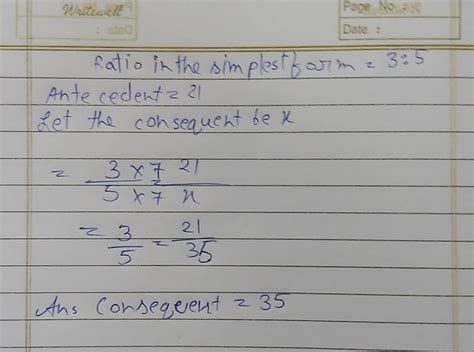 Writewell
Page No.:
Date :
Date :
Ratio in the simplest form = 3:5
Antecedent = 21
Let the consequent be x
= 3 x 7 = 21
5 x 7 x
= 3 = 21
5 35
Ans Consequent = 35